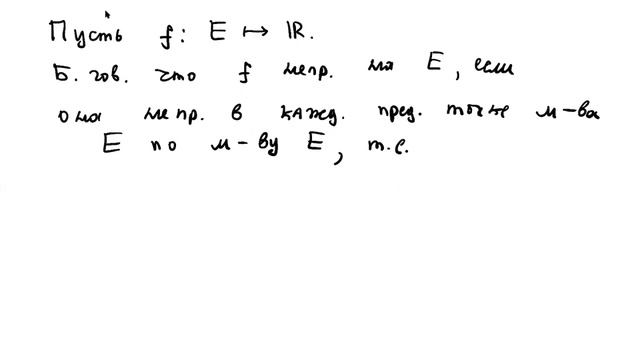 Пусть f: E ↦ ℝ.
Б. гов. что f непр. на E, если
она непр. в кажд. пред. точке м-ва
E по м-ву E, т.е.